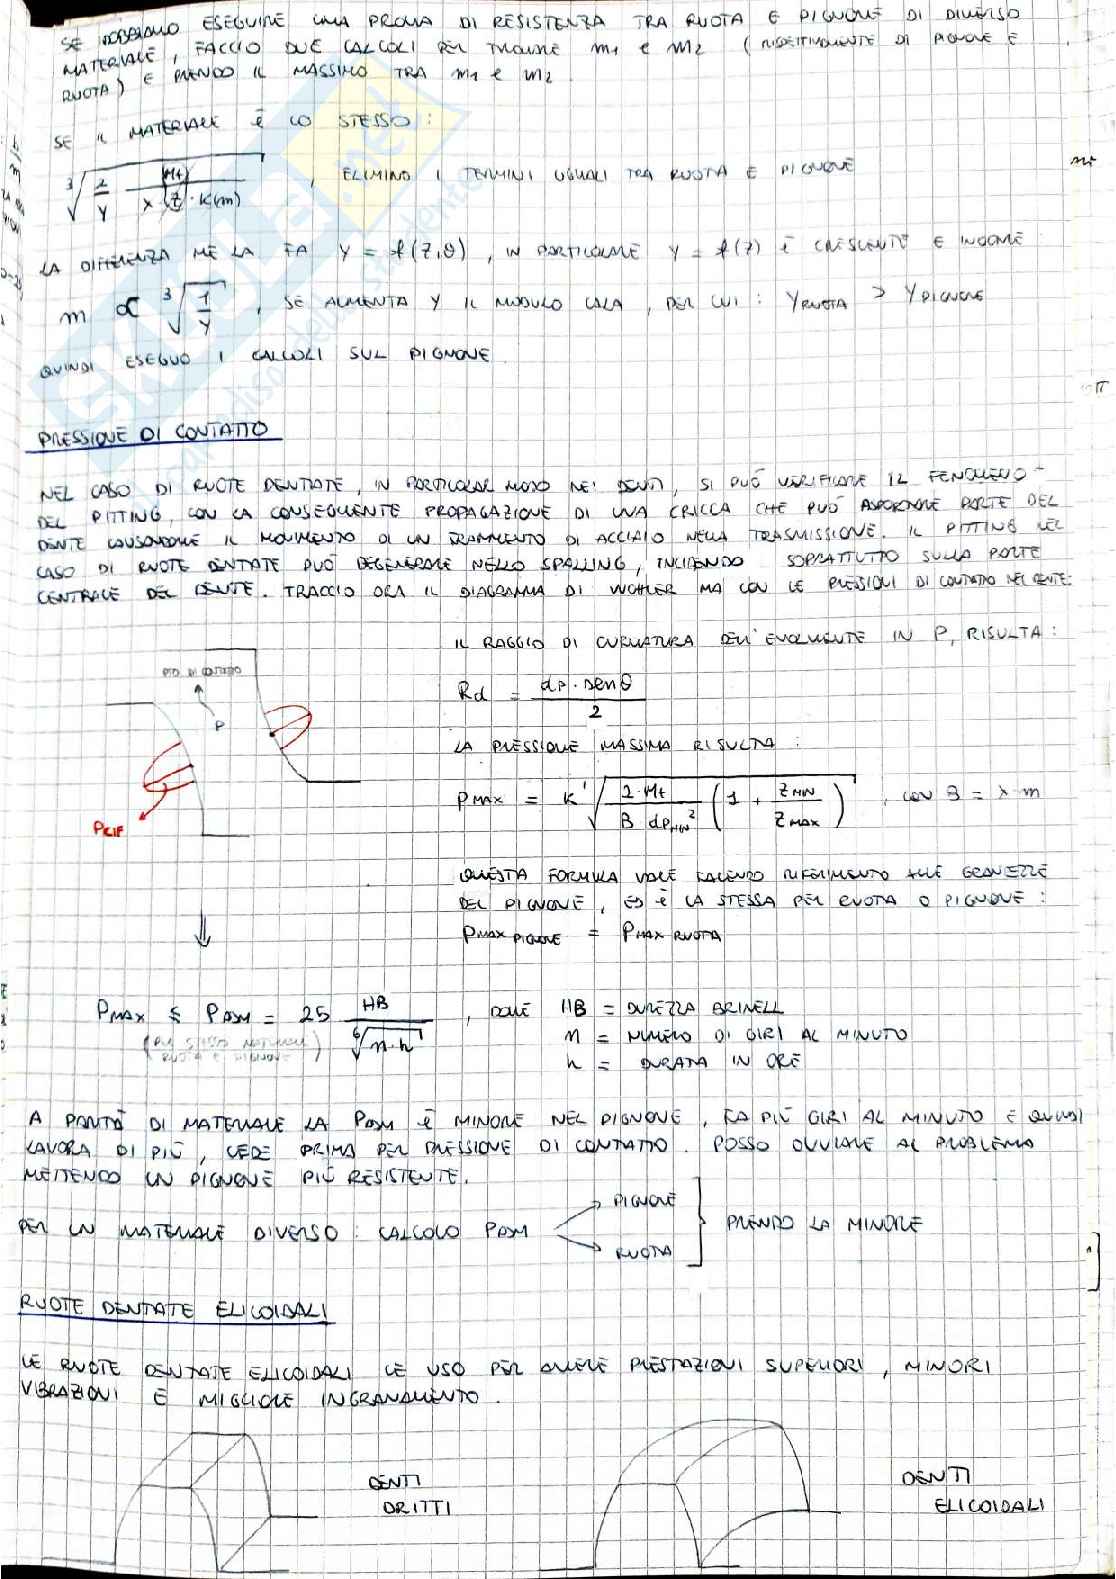 SE DOBBIAMO ESEGUIRE UNA PROVA DI RESISTENZA TRA RUOTA E PIGNONE DI DIVERSO
MATERIALE, FACCIO DUE CALCOLI PER TROVARE m1 e m2 (RISPETTIVAMENTE DI PIGNONE E
RUOTA) E PRENDO IL MASSIMO TRA m1 e m2.
SE IL MATERIALE È LO STESSO:
∛(2/Y · Mt/(λ·Z·K(m))), ELIMINO I TERMINI UGUALI TRA RUOTA E PIGNONE
LA DIFFERENZA ME LA FA Y = f(Z,θ), IN PARTICOLARE Y = f(Z) È CRESCENTE E
m ∝ ∛(1/Y), SE AUMENTA Y IL MODULO CALA, PER CUI: Y RUOTA > Y PIGNONE
QUINDI ESEGUO I CALCOLI SUL PIGNONE
PRESSIONE DI CONTATTO
NEL CASO DI RUOTE DENTATE, IN PARTICOLAR MODO NEI DENTI, SI PUÒ VERIFICARE IL FENOMENO
DEL PITTING, CON LA CONSEGUENTE PROPAGAZIONE DI UNA CRICCA CHE PUÒ ASPORTARE PARTE DEL
DENTE CAUSANDONE IL MOVIMENTO DI UN FRAMMENTO DI ACCIAIO NELLA TRASMISSIONE. IL PITTING NEL
CASO DI RUOTE DENTATE PUÒ DEGENERARE NELLO SPALLING, INCIDENDO SOPRATTUTTO SULLA PARTE
CENTRALE DEL DENTE. TRACCIO ORA IL DIAGRAMMA DI WOHLER MA CON LE PRESSIONI DI CONTATTO NEL DENTE:
IL RAGGIO DI CURVATURA DELL'EVOLVENTE IN P, RISULTA:
PTO DI CONTATTO
P
Rd = dp·senθ / 2
LA PRESSIONE MASSIMA RISULTA:
PMAX = K' √(2·Mt/(B dpMIN²) (1 + ZMIN/ZMAX)), CON B = λ·m
QUESTA FORMULA VALE FACENDO RIFERIMENTO ALLE GRANDEZZE
DEL PIGNONE, ED È LA STESSA PER RUOTA O PIGNONE:
PMAX PIGNONE = PMAX RUOTA
PMAX ≤ PADM = 25 HB/⁶√(n·h), DOVE HB = DUREZZA BRINELL
(PER STESSO MATERIALE RUOTA E PIGNONE)
n = NUMERO DI GIRI AL MINUTO
h = DURATA IN ORE
A PARITÀ DI MATERIALE LA PADM È MINORE NEL PIGNONE, FA PIÙ GIRI AL MINUTO E QUINDI
LAVORA DI PIÙ, CEDE PRIMA PER PRESSIONE DI CONTATTO. POSSO OVVIARE AL PROBLEMA
METTENDO UN PIGNONE PIÙ RESISTENTE.
PER UN MATERIALE DIVERSO: CALCOLO PADM
PIGNONE
RUOTA
PRENDO LA MINORE
RUOTE DENTATE ELICOIDALI
LE RUOTE DENTATE ELICOIDALI LE USO PER AVERE PRESTAZIONI SUPERIORI, MINORI
VIBRAZIONI E MIGLIORE INGRANAMENTO.
DENTI
DRITTI
DENTI
ELICOIDALI